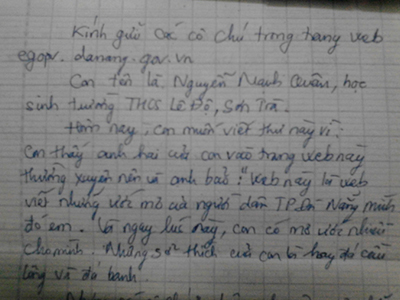 Kính gửi các cô chú trong trang web
egov.danang.gov.vn
Con tên là Nguyễn Mạnh Quân, học
sinh trường THCS Lê Độ, Sơn Trà.
Hôm nay, con muốn viết thư này vì:
Con thấy anh hai của con vào trang web này
thường xuyên nên và anh bảo: "Web này là web
viết những ước mơ của người dân TP.Đà Nẵng mình
đó em. Và ngay lúc này, con có mơ ước nhiều
cho mình. Những sở thích của con là hay đá cầu
lông và đá banh.